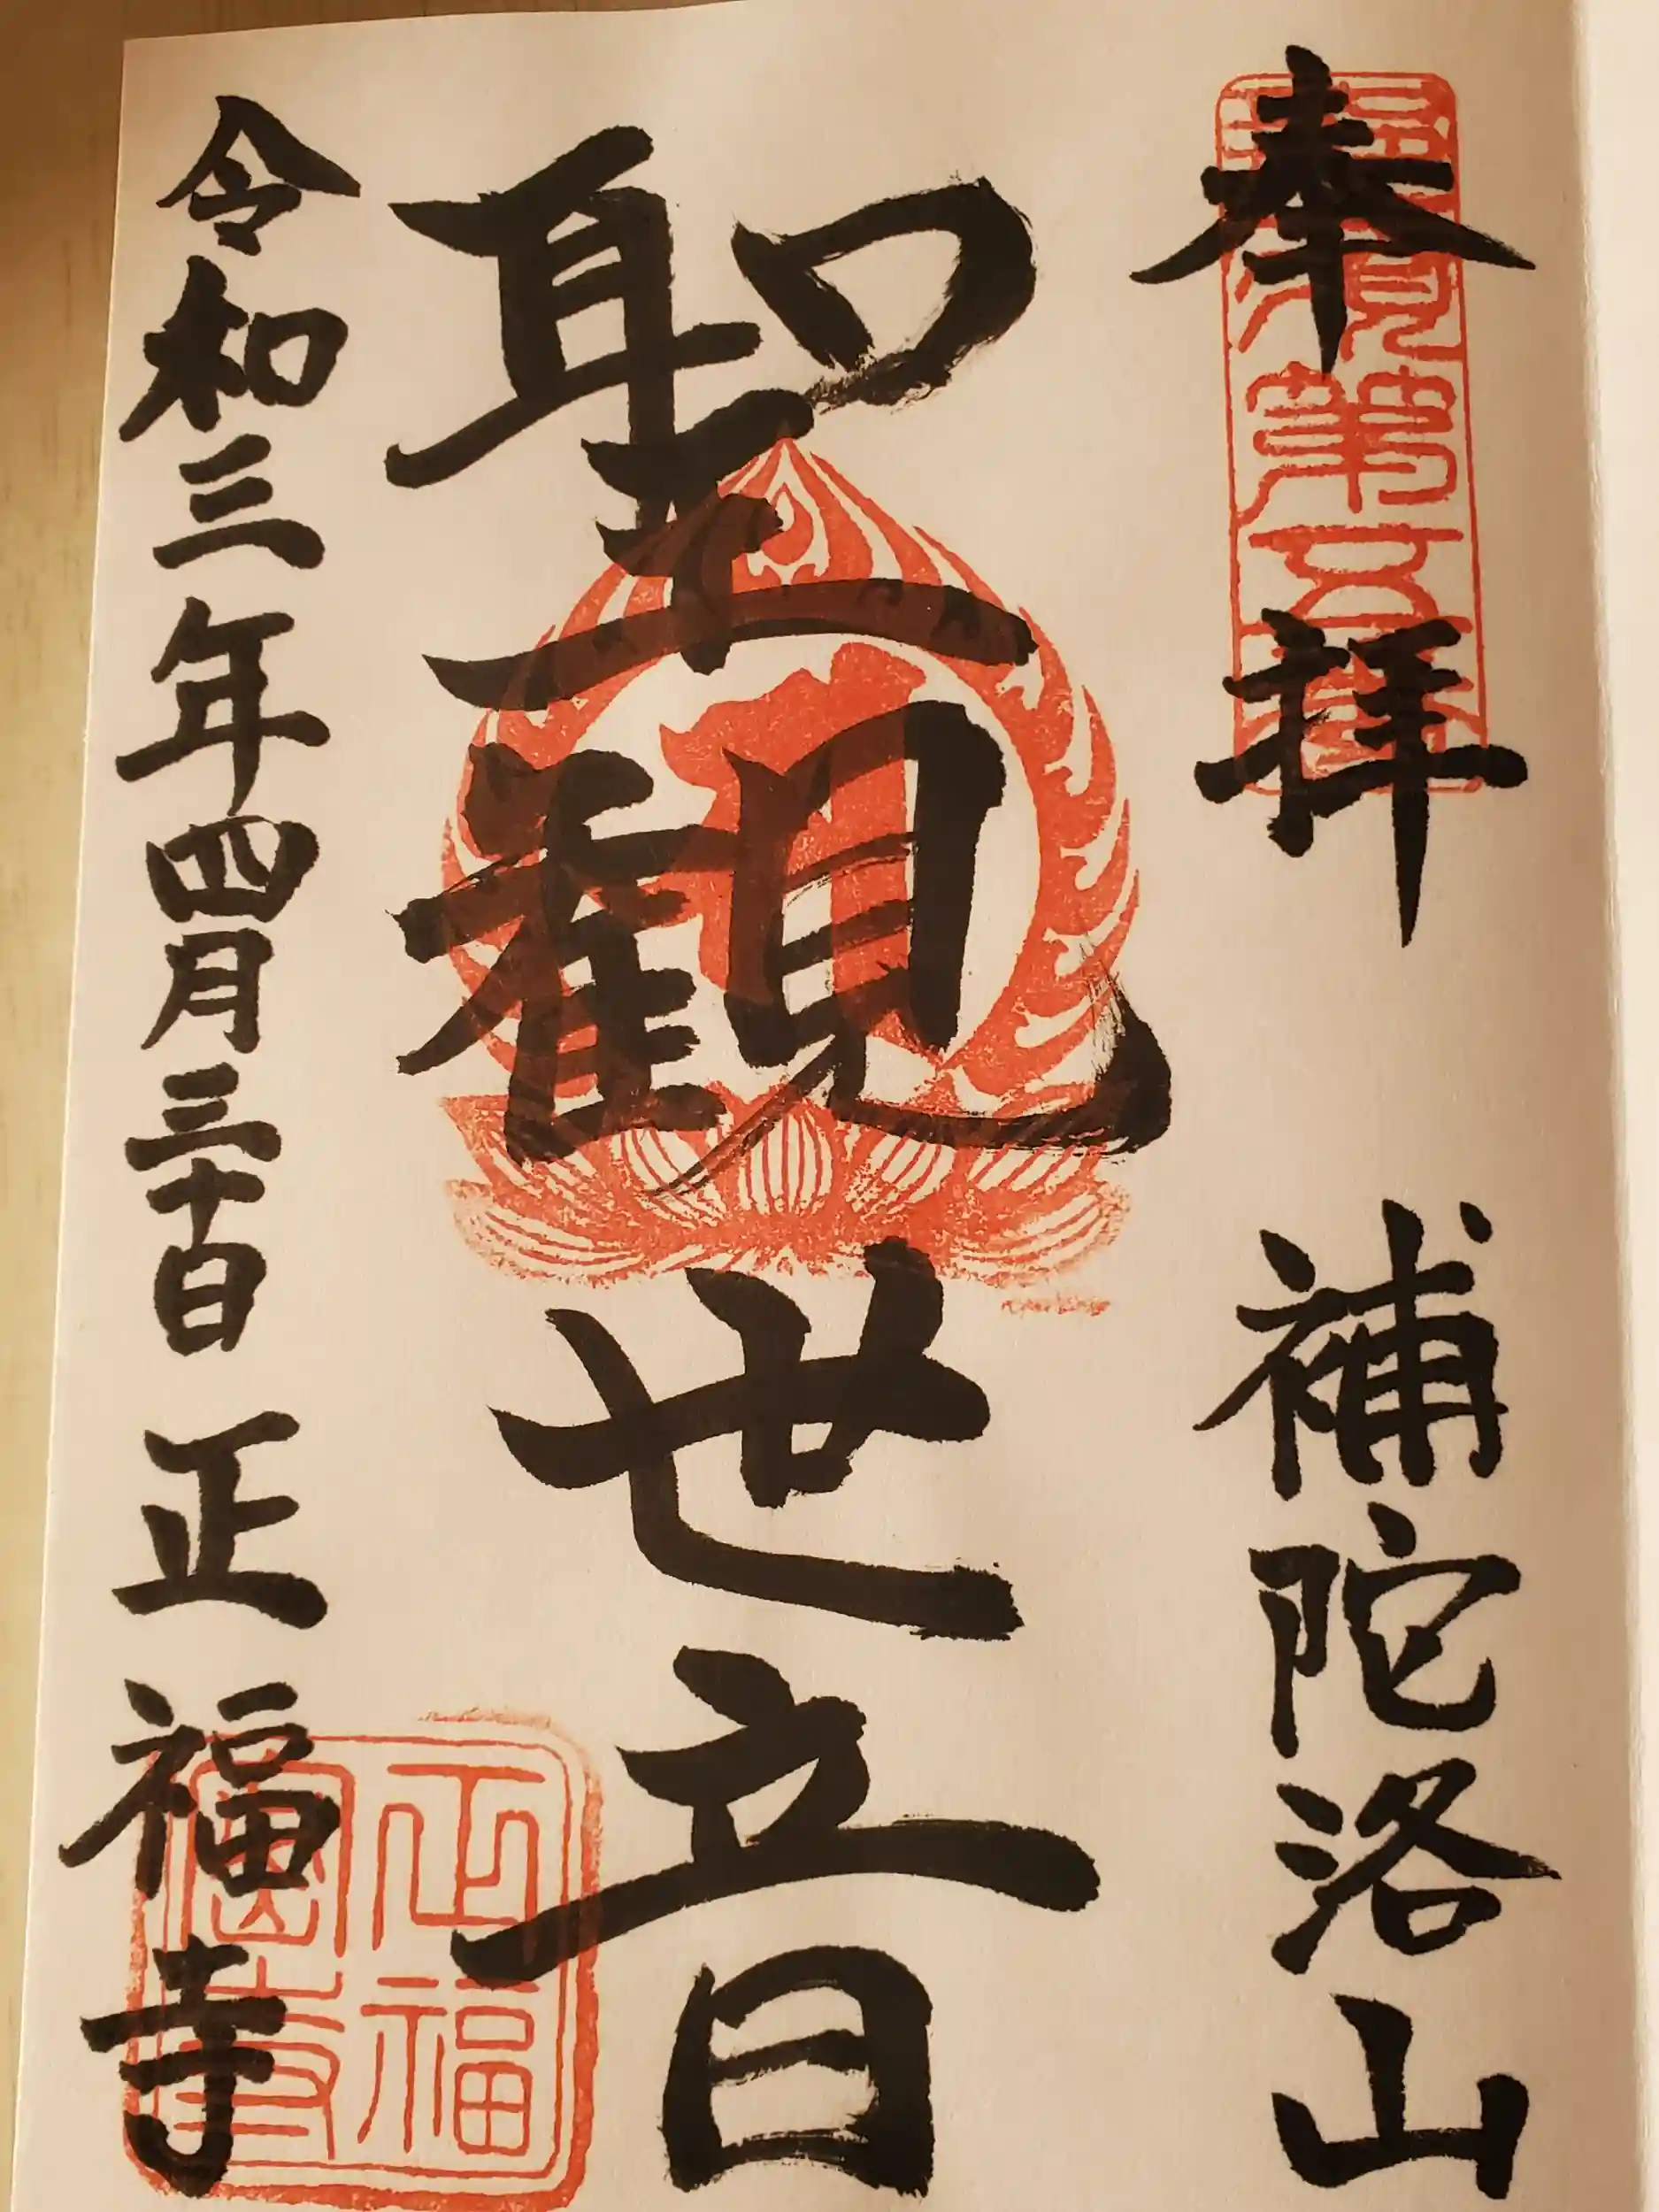 奉拝 補陀洛山
聖観世音
令和三年四月三十日 正福寺
正福